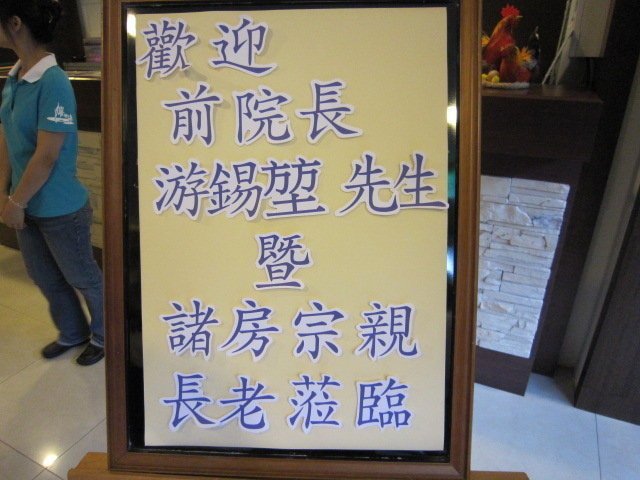 歡迎
前院長
游錫堃 先生
暨
諸房宗親
長老蒞臨